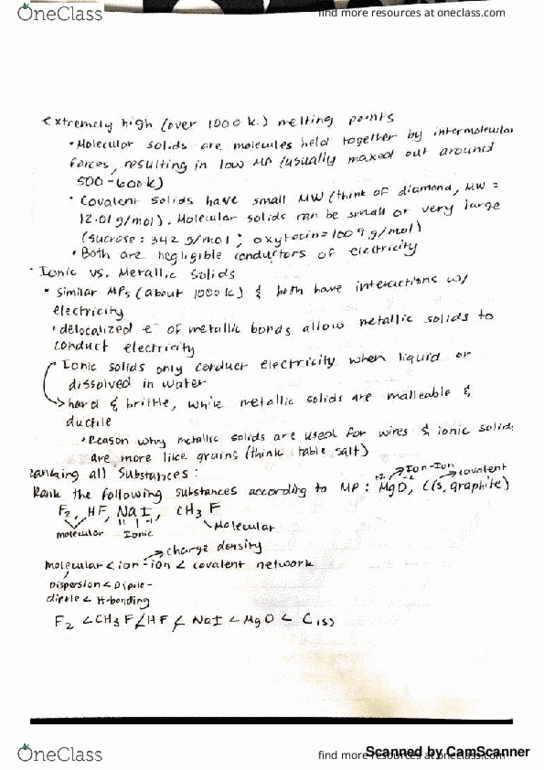 OneClass
find more resources at oneclass.com
extremely high (over 1000 K) melting points
• Molecular solids are molecules held together by intermolecular
forces, resulting in low MP (usually maxed out around
500-600K)
• Covalent solids have small MW (think of diamond, MW =
12.01g/mol). Molecular solids can be small or very large
(sucrose = 342 g/mol ; oxytocin = 1009 g/mol)
• Both are negligible conductors of electricity
• Ionic vs. Metallic Solids
• similar MPs (about 1000K) & both have interactions w/
electricity
• delocalized e⁻ of metallic bonds allow metallic solids to
conduct electricity
Ionic solids only conduct electricity when liquid or
dissolved in water
→ hard & brittle, while metallic solids are malleable &
ductile
• Reason why metallic solids are used for wires & ionic solids
are more like grains (think table salt)
Ranking all substances:
+2 -2 → Ion-Ion → covalent
Rank the following substances according to MP : MgO, C(s, graphite)
F₂, HF, NaI, CH₃F
molecular 1 -1 Ionic Molecular
→ charge density
molecular < ion-ion < covalent network
Dispersion < Dipole-
dipole < H-bonding
F₂ < CH₃F < HF < NaI < MgO < C(s)
OneClass
find more resources at oneclass.com
Scanned by CamScanner